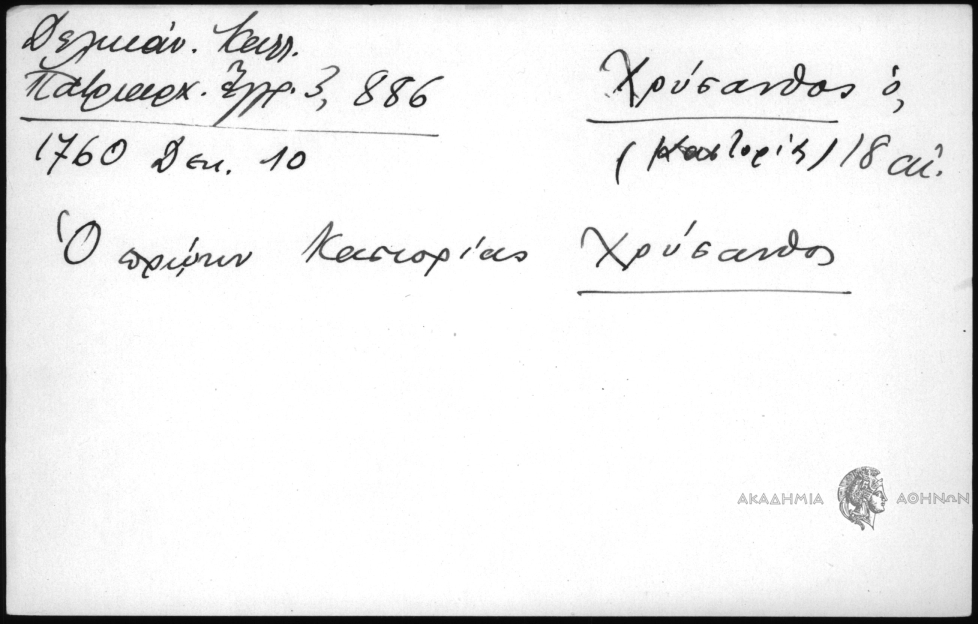 Δελικάν. Καλλ.
Πατριαρχ. Ἔγγρ. 3, 886
1760 Δεκ. 10
Χρύσανθος ὁ,
(Καστορίας) 18 αἰ.
Ὁ πρώην Καστορίας Χρύσανθος
ΑΚΑΔΗΜΙΑ ΑΘΗΝΩΝ